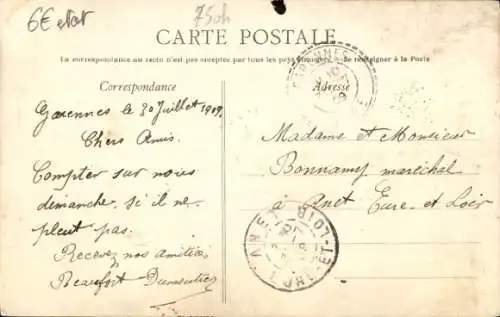 6€ etat
75oh
CARTE POSTALE
La correspondance au recto n'est pas acceptée par tous les pays étrangers. Se renseigner à la Poste
Correspondance
Adresse
Garennes le 30 Juillet
Chers Amis
Compter sur noies
dimanche, si il ne
pleut pas.
Recevez nos amitiés
Beaufort
Madame et Monsieur
Bonnamy, maréchal
à Anet Eure-et Loir
GARENNES
ANET
EURE-ET-LOIR